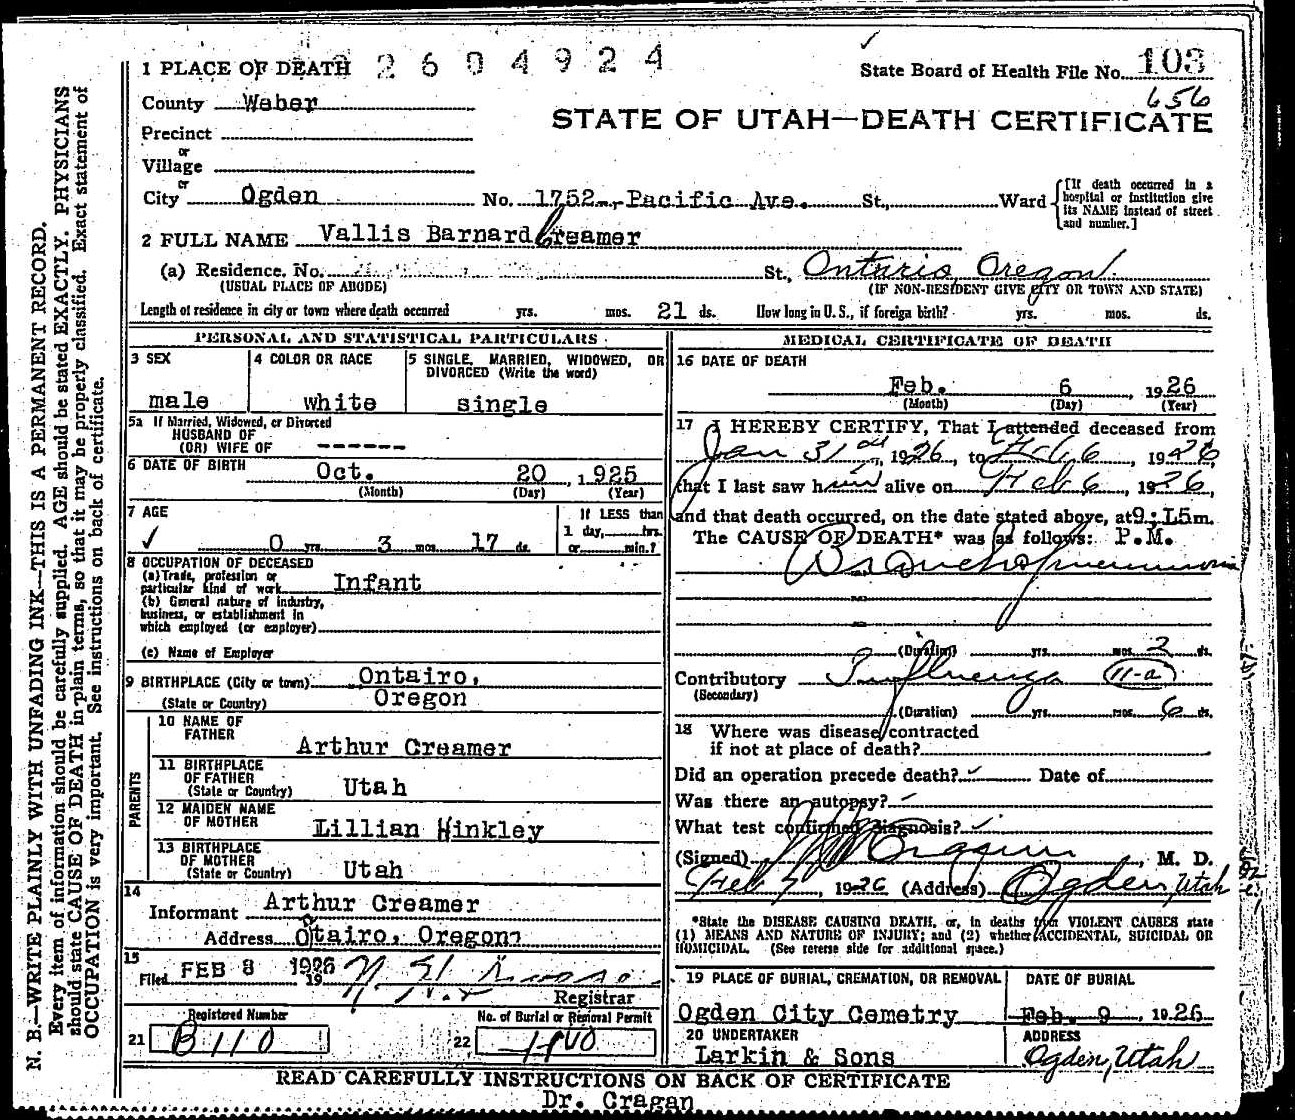 1 PLACE OF DEATH 2604924
State Board of Health File No. 103
656
County Weber
STATE OF UTAH—DEATH CERTIFICATE
Precinct
or
Village
or
City Ogden No. 1752 Pacific Ave. St., Ward [If death occurred in a hospital or institution give its NAME instead of street and number.]
2 FULL NAME Vallis Barnard Creamer
(a) Residence. No. St., Ontario Oregon
(USUAL PLACE OF ABODE) (IF NON-RESIDENT GIVE CITY OR TOWN AND STATE)
Length of residence in city or town where death occurred yrs. mos. 21 ds. How long in U. S., if foreign birth? yrs. mos. ds.
PERSONAL AND STATISTICAL PARTICULARS
3 SEX 4 COLOR OR RACE 5 SINGLE, MARRIED, WIDOWED, OR
DIVORCED (Write the word)
male white single
5a If Married, Widowed, or Divorced
HUSBAND OF
(OR) WIFE OF ------
6 DATE OF BIRTH Oct. 20, 1925
(Month) (Day) (Year)
7 AGE If LESS than
1 day, hrs.
0 yrs. 3 mos. 17 ds. or min.?
8 OCCUPATION OF DECEASED
(a) Trade, profession or
particular kind of work Infant
(b) General nature of industry,
business, or establishment in
which employed (or employer)
(c) Name of Employer
9 BIRTHPLACE (City or town) Ontairo,
(State or Country) Oregon
PARENTS
10 NAME OF
FATHER Arthur Creamer
11 BIRTHPLACE
OF FATHER
(State or Country) Utah
12 MAIDEN NAME
OF MOTHER Lillian Hinkley
13 BIRTHPLACE
OF MOTHER
(State or Country) Utah
14
Informant Arthur Creamer
Address Otairo, Oregon
15
Filed FEB 8 1926 19
Registrar
Registered Number No. of Burial or Removal Permit
21 B110 22
MEDICAL CERTIFICATE OF DEATH
16 DATE OF DEATH
Feb. 6, 1926
(Month) (Day) (Year)
17 I HEREBY CERTIFY, That I attended deceased from
Jan 31, 1926, to Feb 6, 1926
that I last saw him alive on Feb 6, 1926,
and that death occurred, on the date stated above, at 9:15m.
The CAUSE OF DEATH* was as follows: P.M.
Bronchopneumonia
(Duration) yrs. mos. 2 ds.
Contributory Influenza 11-a
(Secondary)
(Duration) yrs. mos. 6 ds.
18 Where was disease contracted
if not at place of death?
Did an operation precede death? Date of
Was there an autopsy?
What test confirmed diagnosis?
(Signed) Cragun, M. D.
Feb 7, 1926 (Address) Ogden, Utah
*State the DISEASE CAUSING DEATH, or, in deaths from VIOLENT CAUSES state
(1) MEANS AND NATURE OF INJURY; and (2) whether ACCIDENTAL, SUICIDAL OR
HOMICIDAL. (See reverse side for additional space.)
19 PLACE OF BURIAL, CREMATION, OR REMOVAL DATE OF BURIAL
Ogden City Cemetry Feb. 9, 1926
20 UNDERTAKER ADDRESS
Larkin & Sons Ogden, Utah
READ CAREFULLY INSTRUCTIONS ON BACK OF CERTIFICATE
Dr. Cragan
N. B.—WRITE PLAINLY WITH UNFADING INK—THIS IS A PERMANENT RECORD.
Every item of information should be carefully supplied. AGE should be stated EXACTLY. PHYSICIANS
should state CAUSE OF DEATH in plain terms, so that it may be properly classified. Exact statement of
OCCUPATION is very important. See instructions on back of certificate.